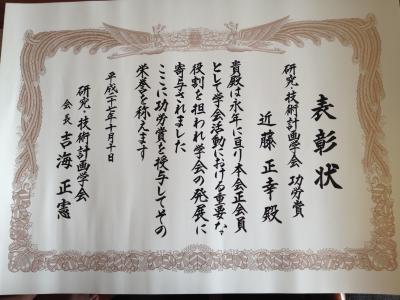 表彰状
研究・技術計画学会 功労賞
近藤正幸殿
貴殿は永年に亘り本会正会員
として学会活動における重要な
役割を担われ学会の発展に
寄与されました
ここに功労賞を授与してその
栄誉を称えます
平成二十七年十月十日
研究・技術計画学会
会長 吉海正憲